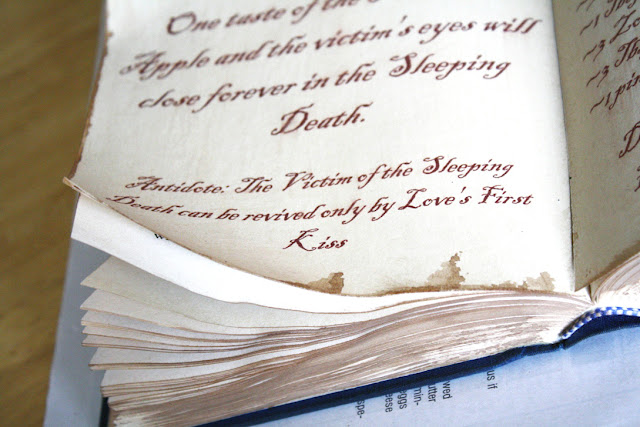 One taste of the
Apple and the victim's eyes will
close forever in the Sleeping
Death.
Antidote: The Victim of the Sleeping
Death can be revived only by Love's First
Kiss
~1
~3
~3
~1
us if
min-
eggs
spe-